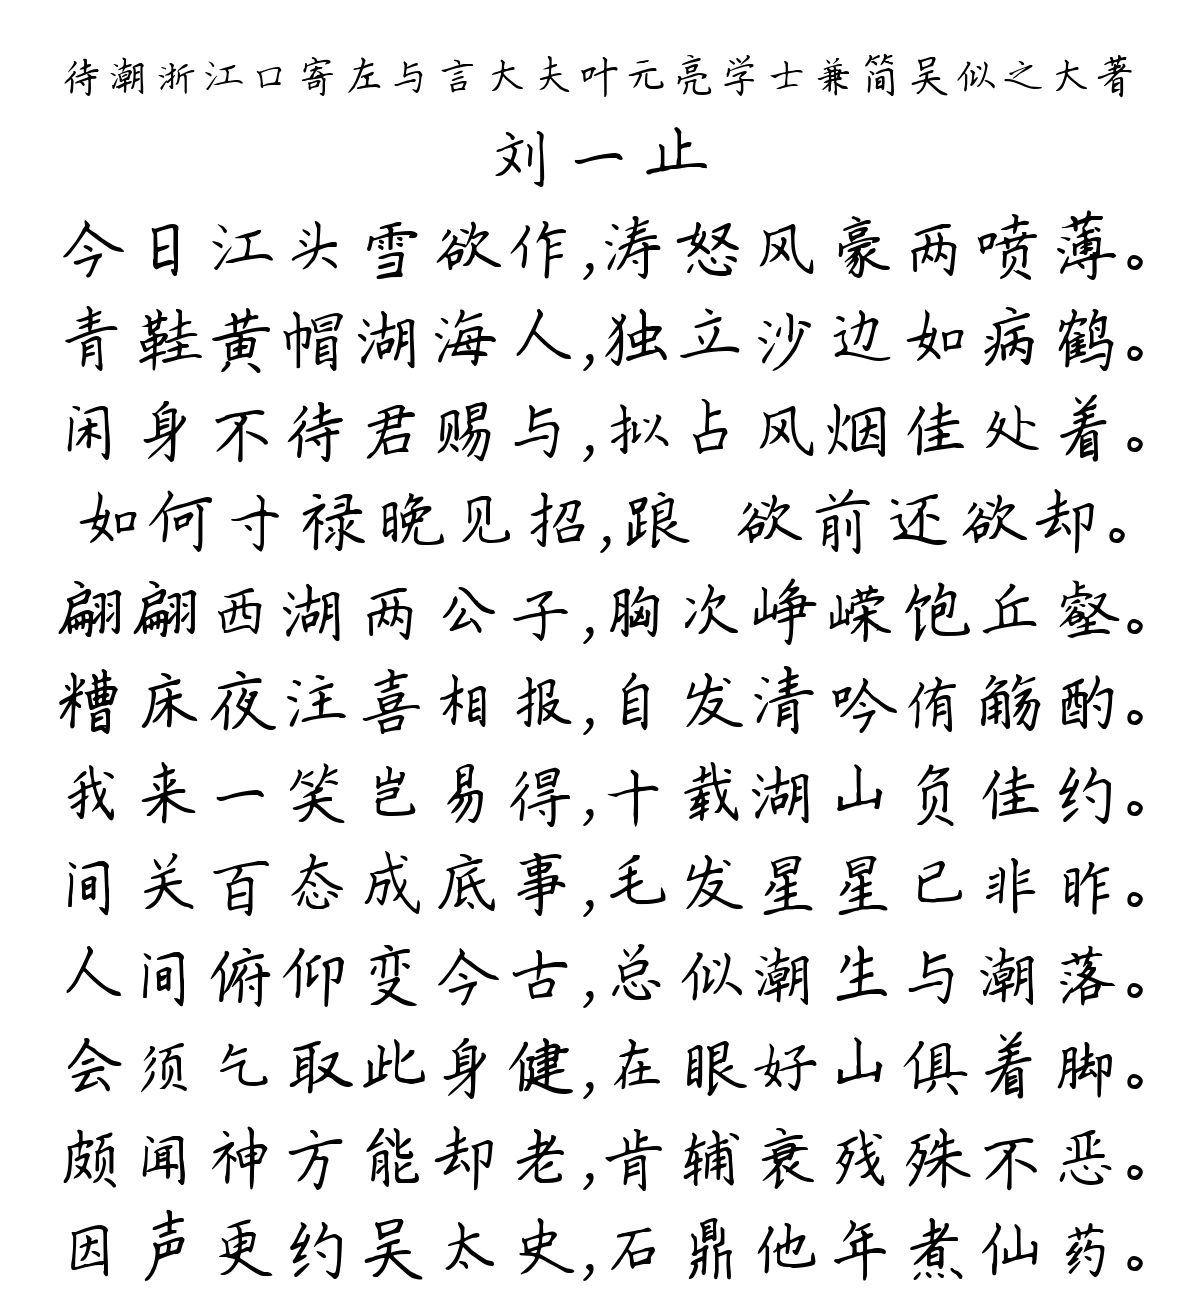 待潮浙江口寄左与言大夫叶元亮学士兼简吴似之大著
刘一止
今日江头雪欲作,涛怒风豪两喷薄。
青鞋黄帽湖海人,独立沙边如病鹤。
闲身不待君赐与,拟占风烟佳处着。
如何寸禄晚见招,踉 欲前还欲却。
翩翩西湖两公子,胸次峥嵘饱丘壑。
糟床夜注喜相报,自发清吟侑觞酌。
我来一笑岂易得,十载湖山负佳约。
间关百态成底事,毛发星星已非昨。
人间俯仰变今古,总似潮生与潮落。
会须乞取此身健,在眼好山俱着脚。
颇闻神方能却老,肯辅衰残殊不恶。
因声更约吴太史,石鼎他年煮仙药。